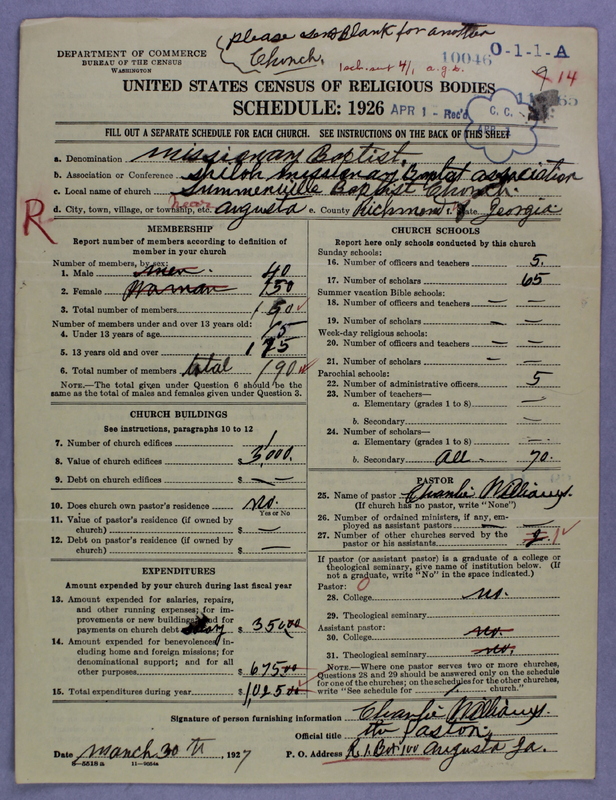 please send Blank for another
Church.
DEPARTMENT OF COMMERCE
BUREAU OF THE CENSUS
WASHINGTON
10046
O-1-1-A
1 sch. out 4/1 a.g.s.
14
UNITED STATES CENSUS OF RELIGIOUS BODIES
SCHEDULE: 1926
APR 1 - Rec'd
C. C.
APR 1
FILL OUT A SEPARATE SCHEDULE FOR EACH CHURCH. SEE INSTRUCTIONS ON THE BACK OF THIS SHEET
a. Denomination Missionary Baptist.
b. Association or Conference Shiloh missionary Baptist association
c. Local name of church Summerville Baptist Church.
R
d. City, town, village, or township, etc. near augusta e. County Richmond. f. State Georgia
MEMBERSHIP
Report number of members according to definition of
member in your church
Number of members, by sex:
1. Male men. 40
2. Female Woman 150
3. Total number of members 190
Number of members under and over 13 years old:
4. Under 13 years of age 15
5. 13 years old and over 175
6. Total number of members total 190
NOTE.—The total given under Question 6 should be the
same as the total of males and females given under Question 3.
CHURCH BUILDINGS
See instructions, paragraphs 10 to 12
7. Number of church edifices 1
8. Value of church edifices $ 3,000.
9. Debt on church edifices $ —
10. Does church own pastor's residence no.
Yes or No
11. Value of pastor's residence (if owned by
church) $ —
12. Debt on pastor's residence (if owned by
church) $ —
EXPENDITURES
Amount expended by your church during last fiscal year
13. Amount expended for salaries, repairs,
and other running expenses; for im-
provements or new buildings; and for
payments on church debt $ 350.00
14. Amount expended for benevolences, in-
cluding home and foreign missions; for
denominational support; and for all
other purposes $ 675.00
15. Total expenditures during year $ 1,025.00
CHURCH SCHOOLS
Report here only schools conducted by this church
Sunday schools:
16. Number of officers and teachers 5.
17. Number of scholars 65
Summer vacation Bible schools:
18. Number of officers and teachers — —
19. Number of scholars — —
Week-day religious schools:
20. Number of officers and teachers — —
21. Number of scholars — —
Parochial schools:
22. Number of administrative officers 5
23. Number of teachers—
a. Elementary (grades 1 to 8) —
b. Secondary —
24. Number of scholars—
a. Elementary (grades 1 to 8) —
b. Secondary all. 70.
PASTOR
25. Name of pastor Charlie Williams.
(If church has no pastor, write "None")
26. Number of ordained ministers, if any, em-
ployed as assistant pastors — —
27. Number of other churches served by the
pastor or his assistants 1
If pastor (or assistant pastor) is a graduate of a college or
theological seminary, give name of institution below. (If
not a graduate, write "No" in the space indicated.)
Pastor: 0
28. College no.
29. Theological seminary
Assistant pastor:
30. College no.
31. Theological seminary no.
NOTE.—Where one pastor serves two or more churches,
Questions 28 and 29 should be answered only on the schedule
for one of the churches; on the schedules for the other churches,
write "See schedule for 1 church."
Signature of person furnishing information Charlie Williams.
Official title the Pastor.
Date March 30 th, 1927 P. O. Address R 1. Box 100 augusta Ga.
8-5518 a 11-9034a